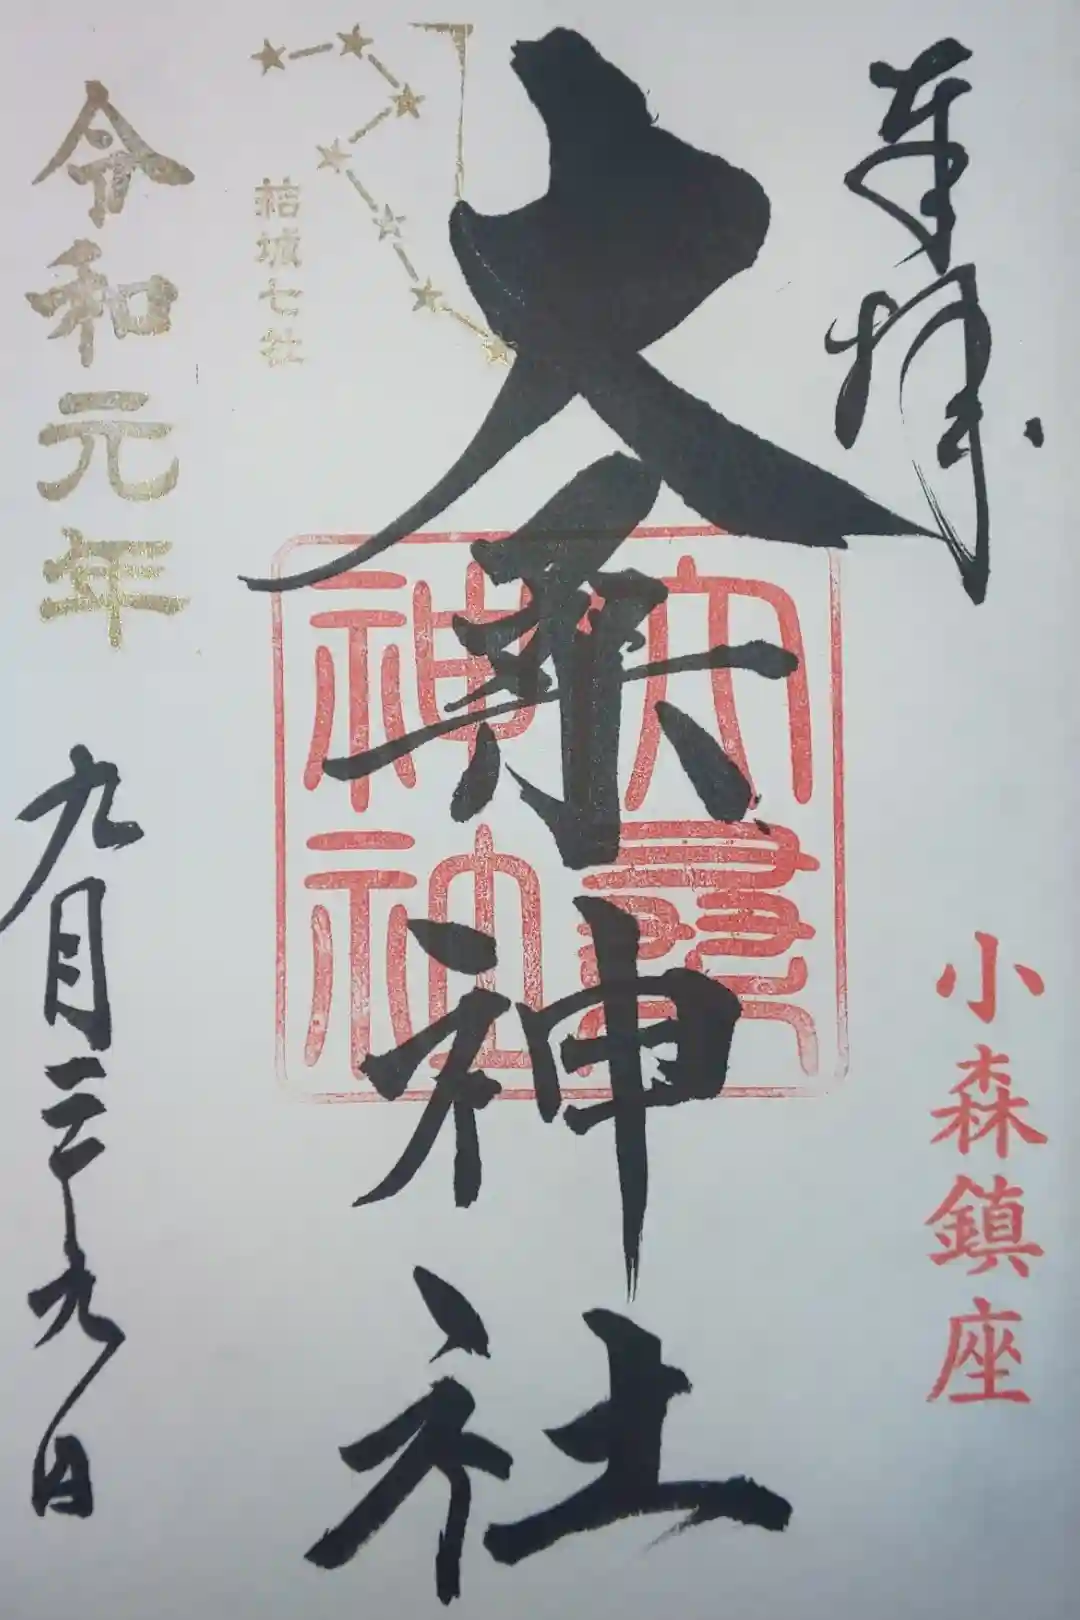 奉拝
小森鎮座
大桑神社
大桑神社
結城七社
令和元年
九月二十九日